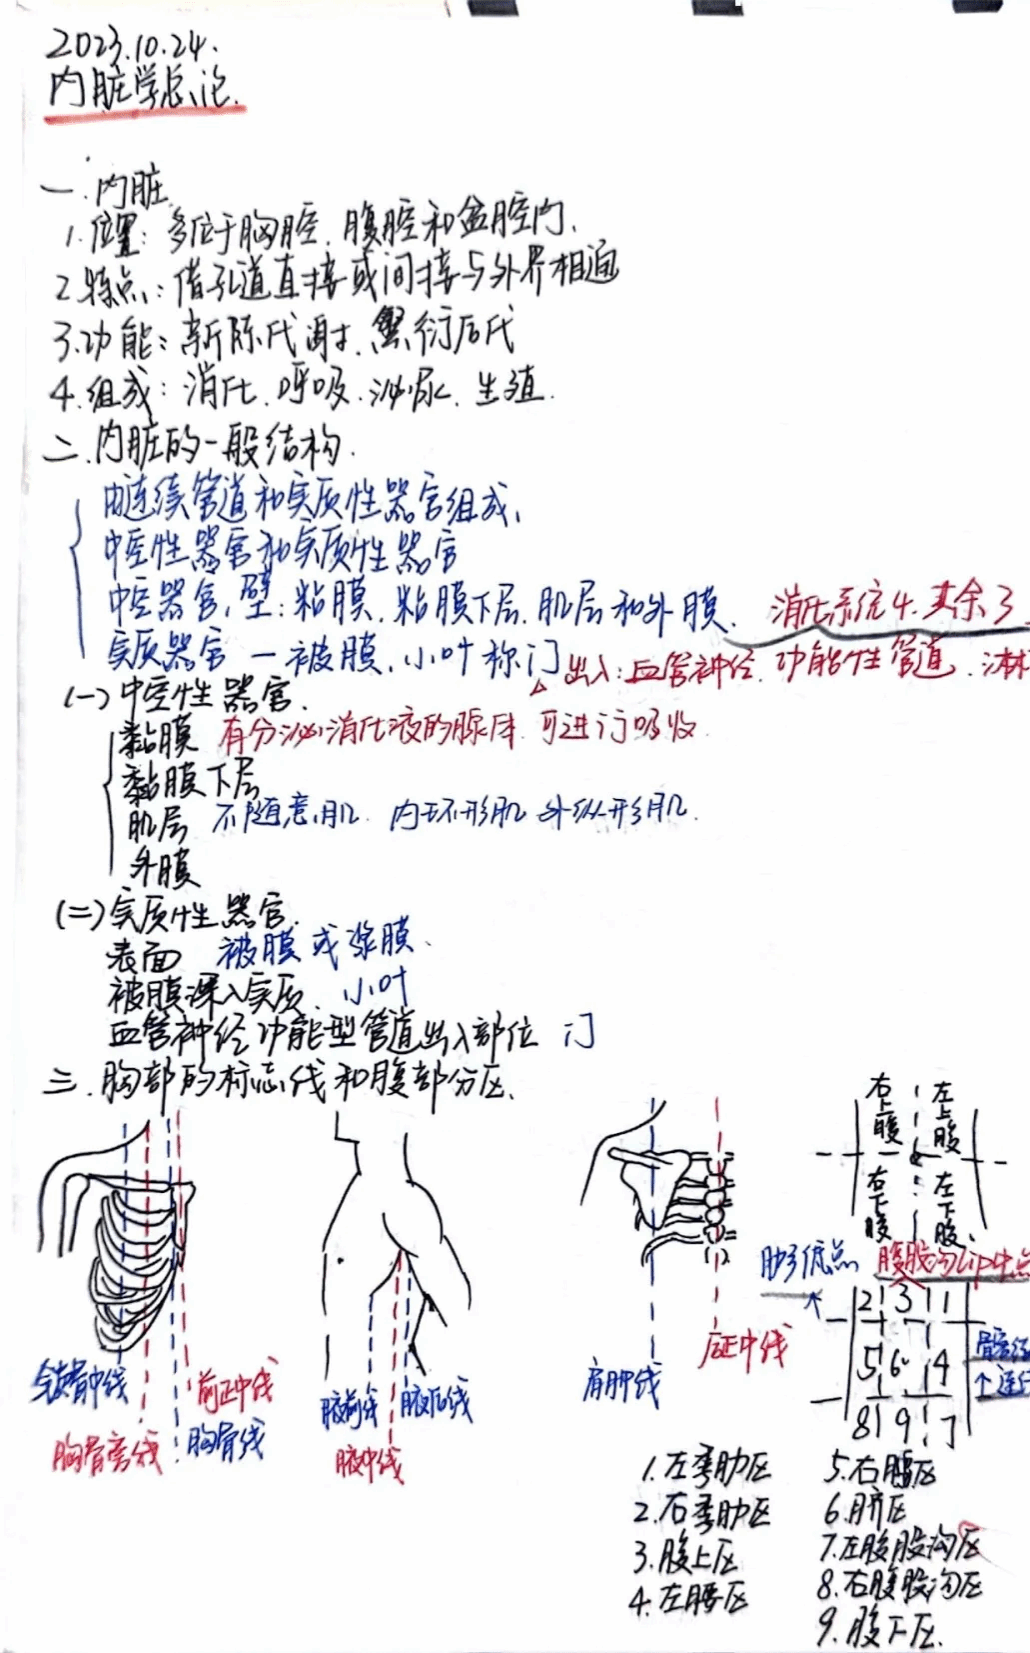 2023.10.24.
内脏学总论.
一.内脏
1.位置：多位于胸腔.腹腔和盆腔内.
2.特点：借孔道直接或间接与外界相通
3.功能：新陈代谢.繁衍后代
4.组成：消化.呼吸.泌尿.生殖.
二.内脏的一般结构.
由连续管道和实质性器官组成.
中空性器官和实质性器官
中空器官.壁：粘膜.粘膜下层.肌层和外膜. 消化系统4.其余3
实质器官 一被膜.小叶称门 出入：血管神经.功能性管道.淋
(一)中空性器官.
黏膜 有分泌消化液的腺体.可进行吸收.
黏膜下层
肌层 不随意肌.内环形肌 外纵形肌.
外膜
(二)实质性器官.
表面 被膜或浆膜.
被膜深入实质. 小叶
血管神经功能型管道出入部位 门
三.胸部的标志线和腹部分区.
锁骨中线
胸骨旁线
前正中线
胸骨线
腋前线
腋后线
腋中线
肩胛线
后正中线
右上腹 左上腹
右下腹 左下腹.
肋弓低点 腹股沟lip中点
2 3 1
5 6 4
8 9 7
1.左季肋区 5.右腰区
2.右季肋区 6.脐区
3.腹上区 7.左腹股沟区
4.左腰区 8.右腹股沟区
9.腹下区.